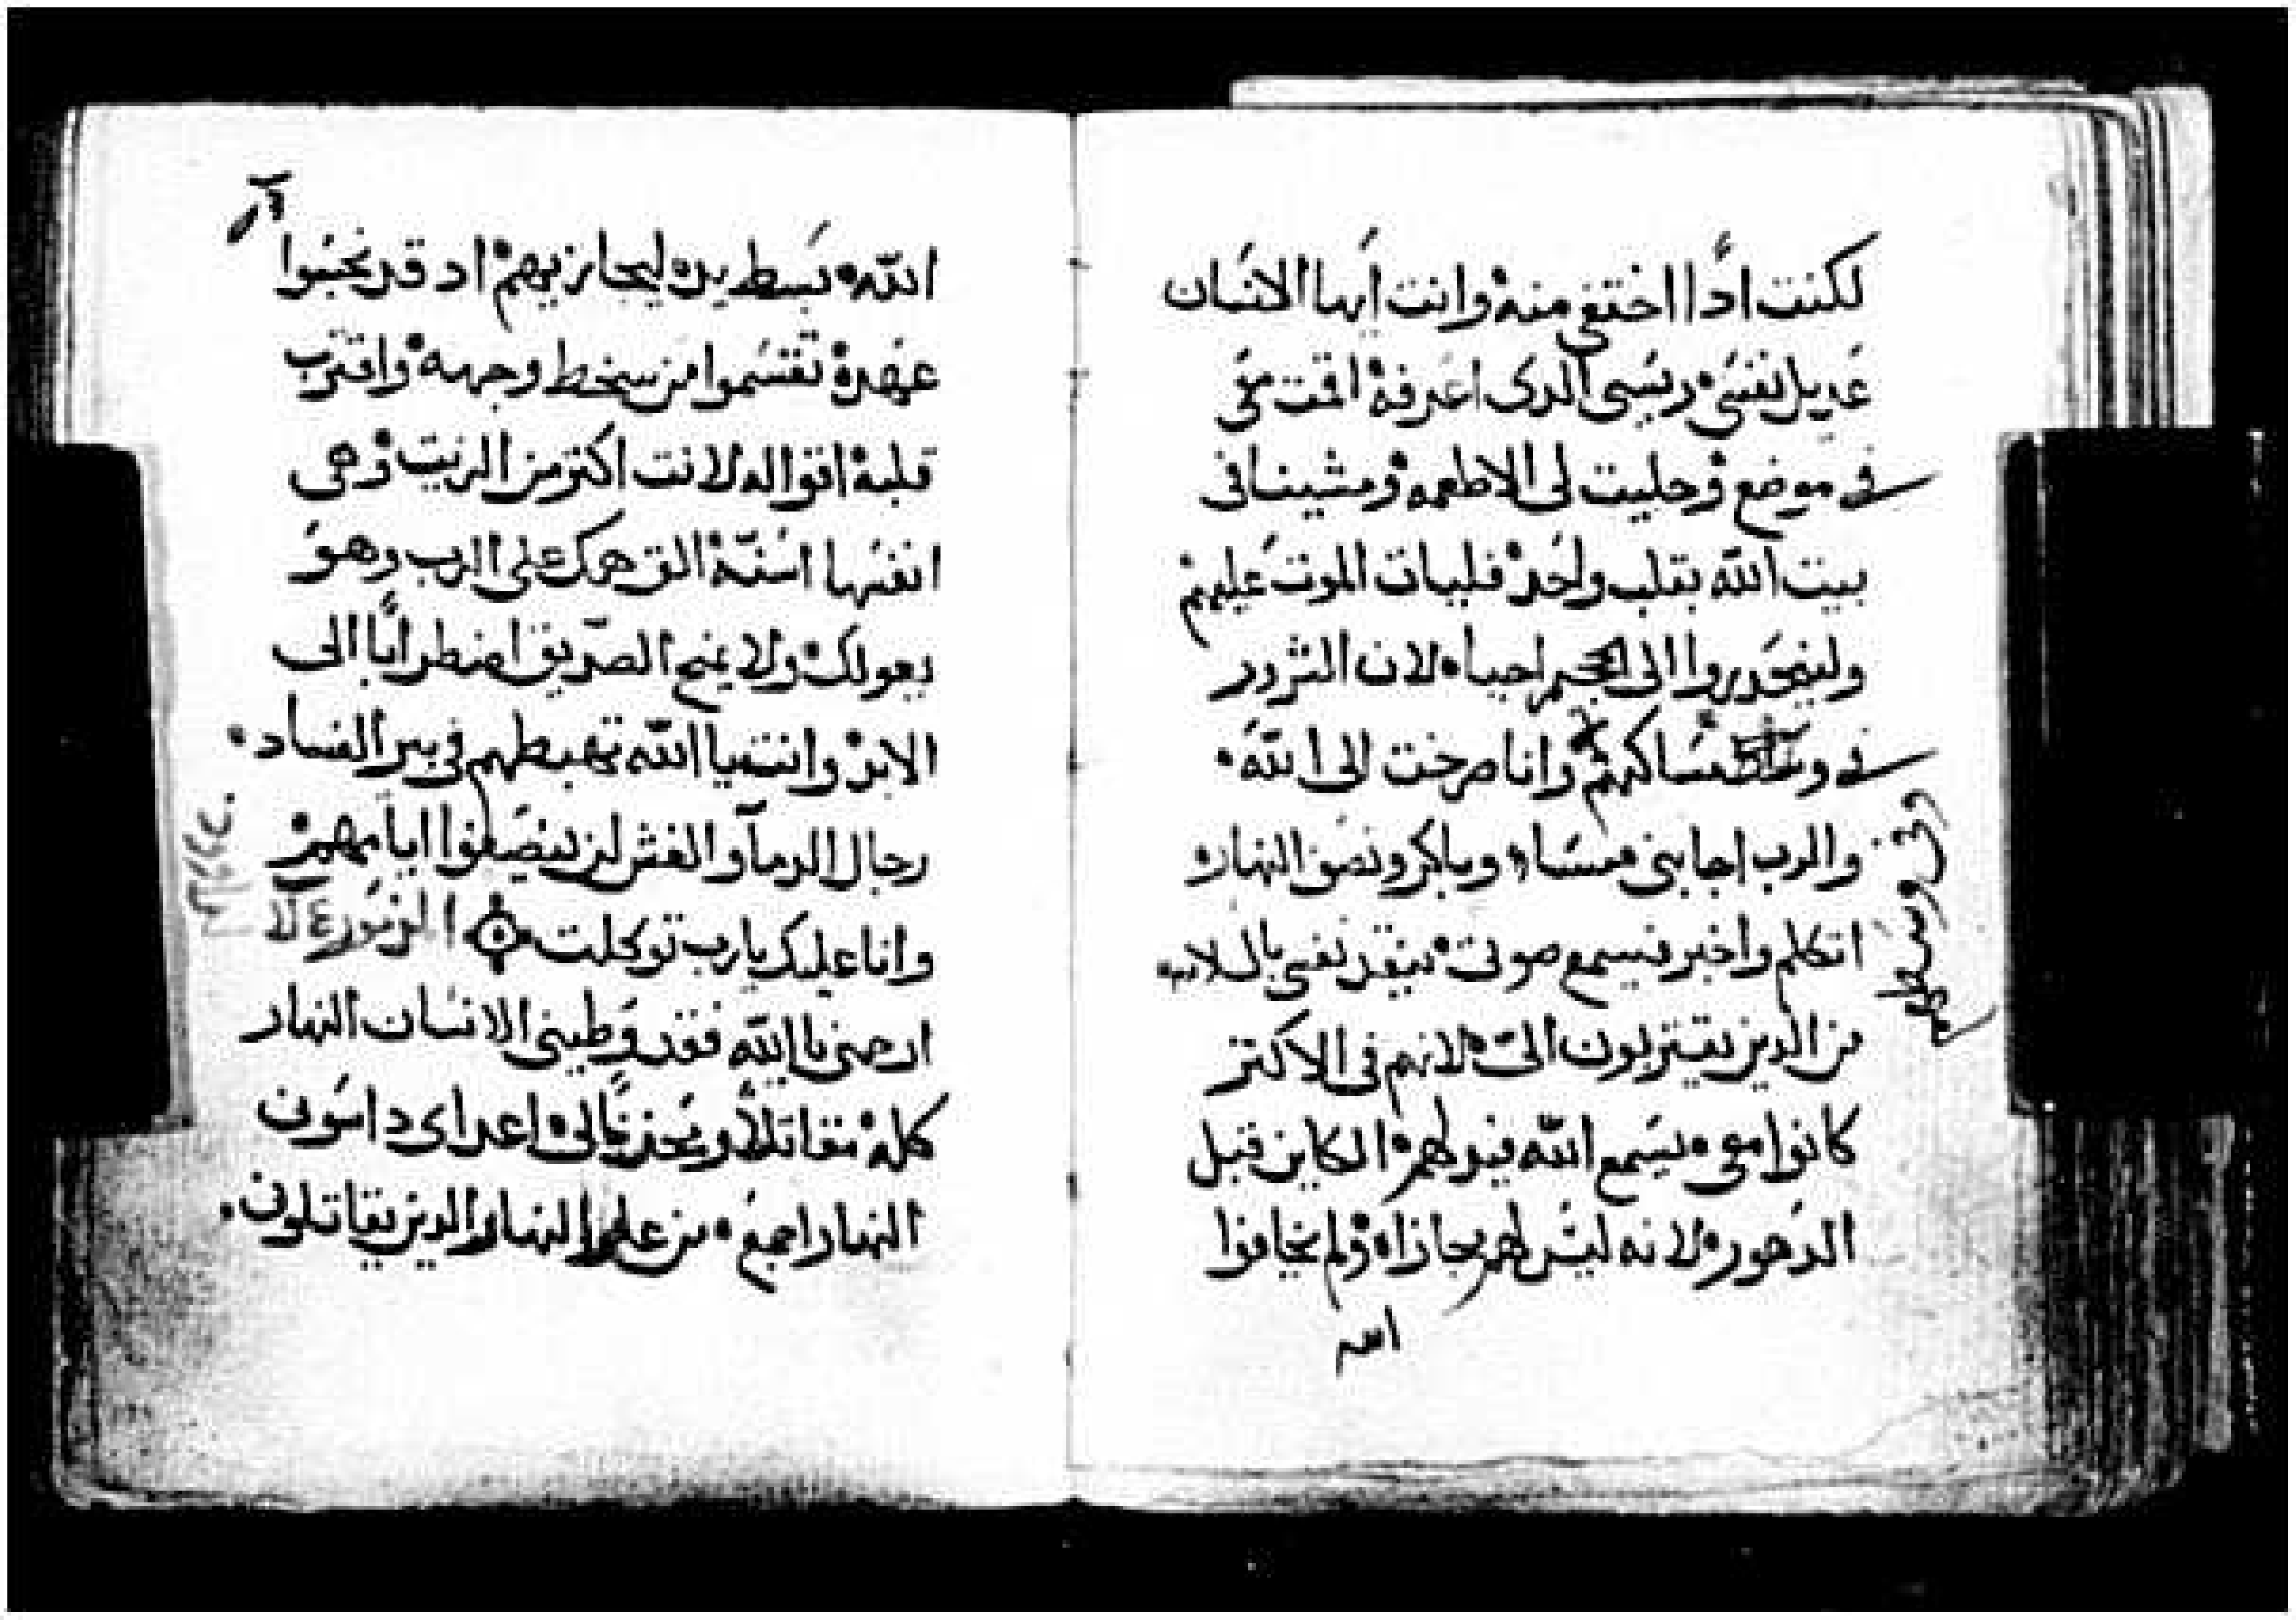 لكنت ادًا اختفي منه وانت ايها الانسان
عديل نفسي ريسي الدى اعرفه اقمت معى
فى موضع وحليت لى الاطعمه ومشينا فى
بيت الله بقلب واحد فليات الموت عليهم
ولينحدروا الى الجحيم احيا لان الشرور
فى مساكنهم وانا صرخت الى الله
والرب اجابنى مساء وباكر ونصف النهار
اتكلم واخبر فيسمع صوتى ينقد نفسى بالسلامه
من الدين يقتربون الىّ لانهم فى الاكتر
كانوا معى يسمع الله فيدلهم الكاين قبل
الدهور لانه ليس لهم مجازاه ولم يخافوا
الله
وفى وسطهم
الله بسط يده ليجازيهم اد قد نجسوا
عهده تقسموا من سخط وجهه واقترب
قلبه اقواله لانت اكتر من الزيت وهى
انفسها اسنّة الق همك على الرب وهو
يعولك ولا يمنح الصدّيق اضطرابًا الى
الابد وانت يا الله تهبطهم فى بير الفساد
رجال الدمآ والغش لن ينصفوا ايامهم
وانا عليك يارب توكلت المزمور
ارحمنى يا الله فقد وطينى الانسان النهار
كله مقاتلًا ومحزنًا لى اعداى داسونى
النهار اجمع من علو النهار والدين يقاتلونى